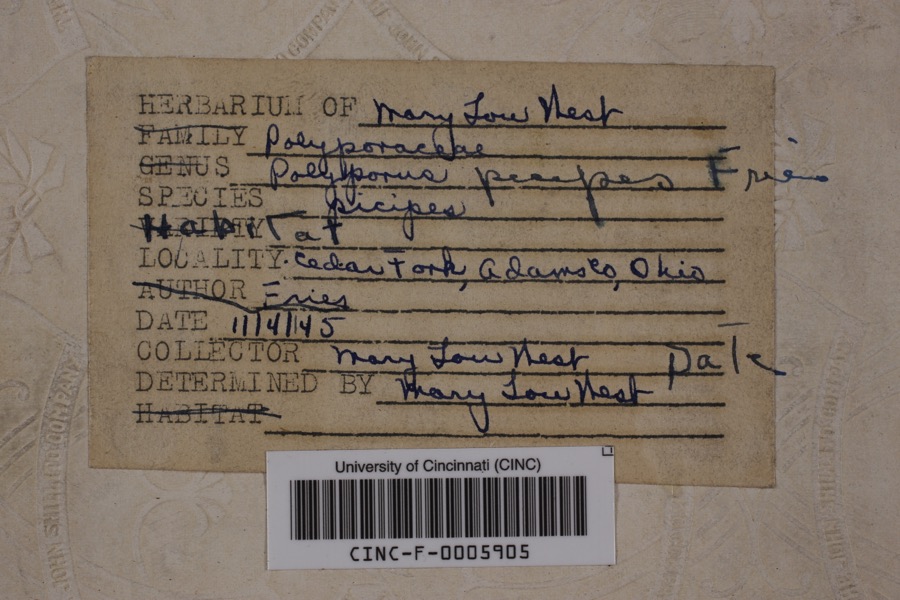 HERBARIUM OF Mary Lou Hest
FAMILY Polyporaceae
GENUS Polyporus picipes Fries
SPECIES picipes
HabiTat
LOCALITY. Cedar Fork, Adams Co, Ohio
AUTHOR Fries
DATE 11/4/45
COLLECTOR Mary Lou Hest Date
DETERMINED BY Mary Lou Hest
HABITAT
University of Cincinnati (CINC)
CINC-F-0005905